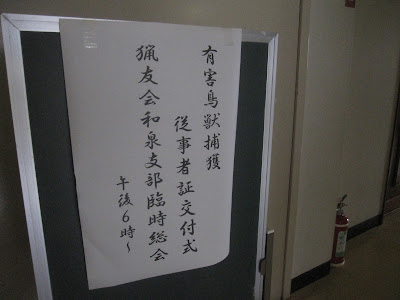 有害鳥獣捕獲
従事者証交付式
猟友会和泉支部臨時総会
午後6時〜